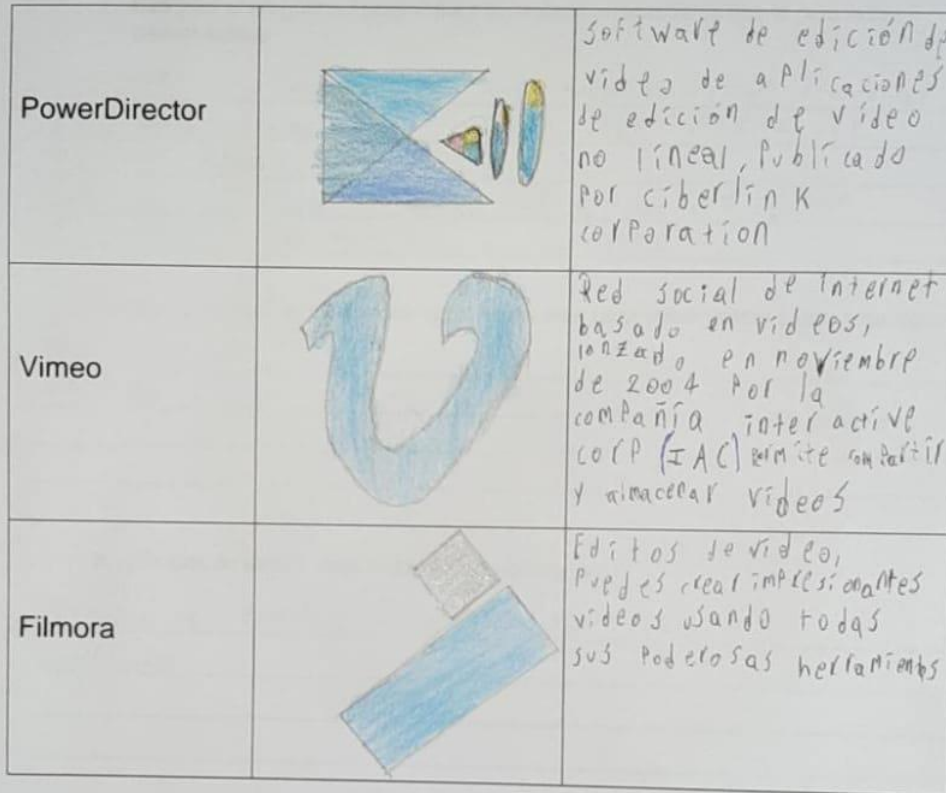 PowerDirector
Software de edición de
video de aplicaciones
de edición de vídeo
no líneal, Publicado
Por ciberlink
corporation
Vimeo
Red social de internet
basado en vídeos,
lanzado en noviembre
de 2004 Por la
compañía interactive
corp (IAC) permite compartir
y almacenar vídeos
Filmora
Editos de vídeo,
Puedes crear impresionantes
vídeos usando todas
sus Poderosas herramientas